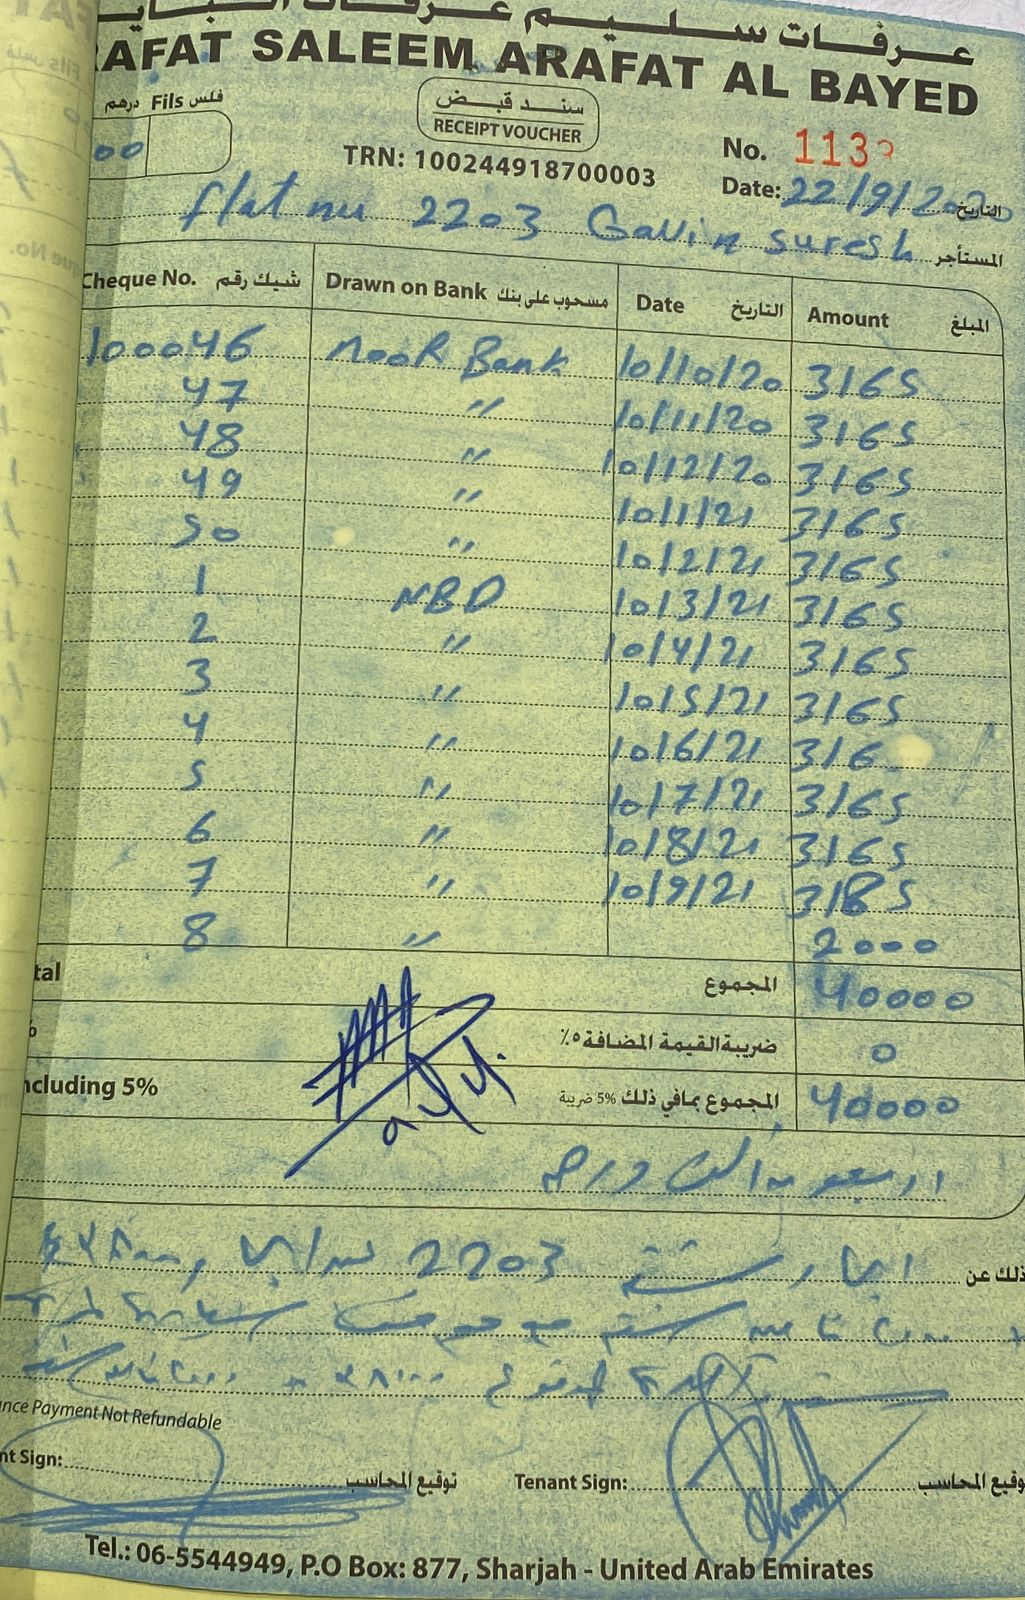 عرفات سليم عرفات
RAFAT SALEEM ARAFAT AL BAYED
درهم Fils فلس
سند قبض
RECEIPT VOUCHER
00
No. 113
TRN: 100244918700003
Date: 22/9/2020 التاريخ
flat nu 2203 Gavin Suresh المستأجر
Cheque No. شيك رقم Drawn on Bank مسحوب على بنك Date التاريخ Amount المبلغ
100046 Noor Bank 10/10/20 3165
47 " 10/11/20 3165
48 " 10/12/20 3165
49 " 10/1/21 3165
50 " 10/2/21 3165
1 NBD 10/3/21 3165
2 " 10/4/21 3165
3 " 10/5/21 3165
4 " 10/6/21 316
5 " 10/7/21 3165
6 " 10/8/21 3165
7 " 10/9/21 3185
8 " 2000
tal المجموع 40000
% ضريبة القيمة المضافة ٥٪ 0
ncluding 5% المجموع بمافي ذلك 5% ضريبة 40000
اربعون الف درهم
ذلك عن ايجار شقة 2203
nce Payment Not Refundable
nt Sign: توقيع المحاسب Tenant Sign: وقيع المحاسب
Tel.: 06-5544949, P.O Box: 877, Sharjah - United Arab Emirates